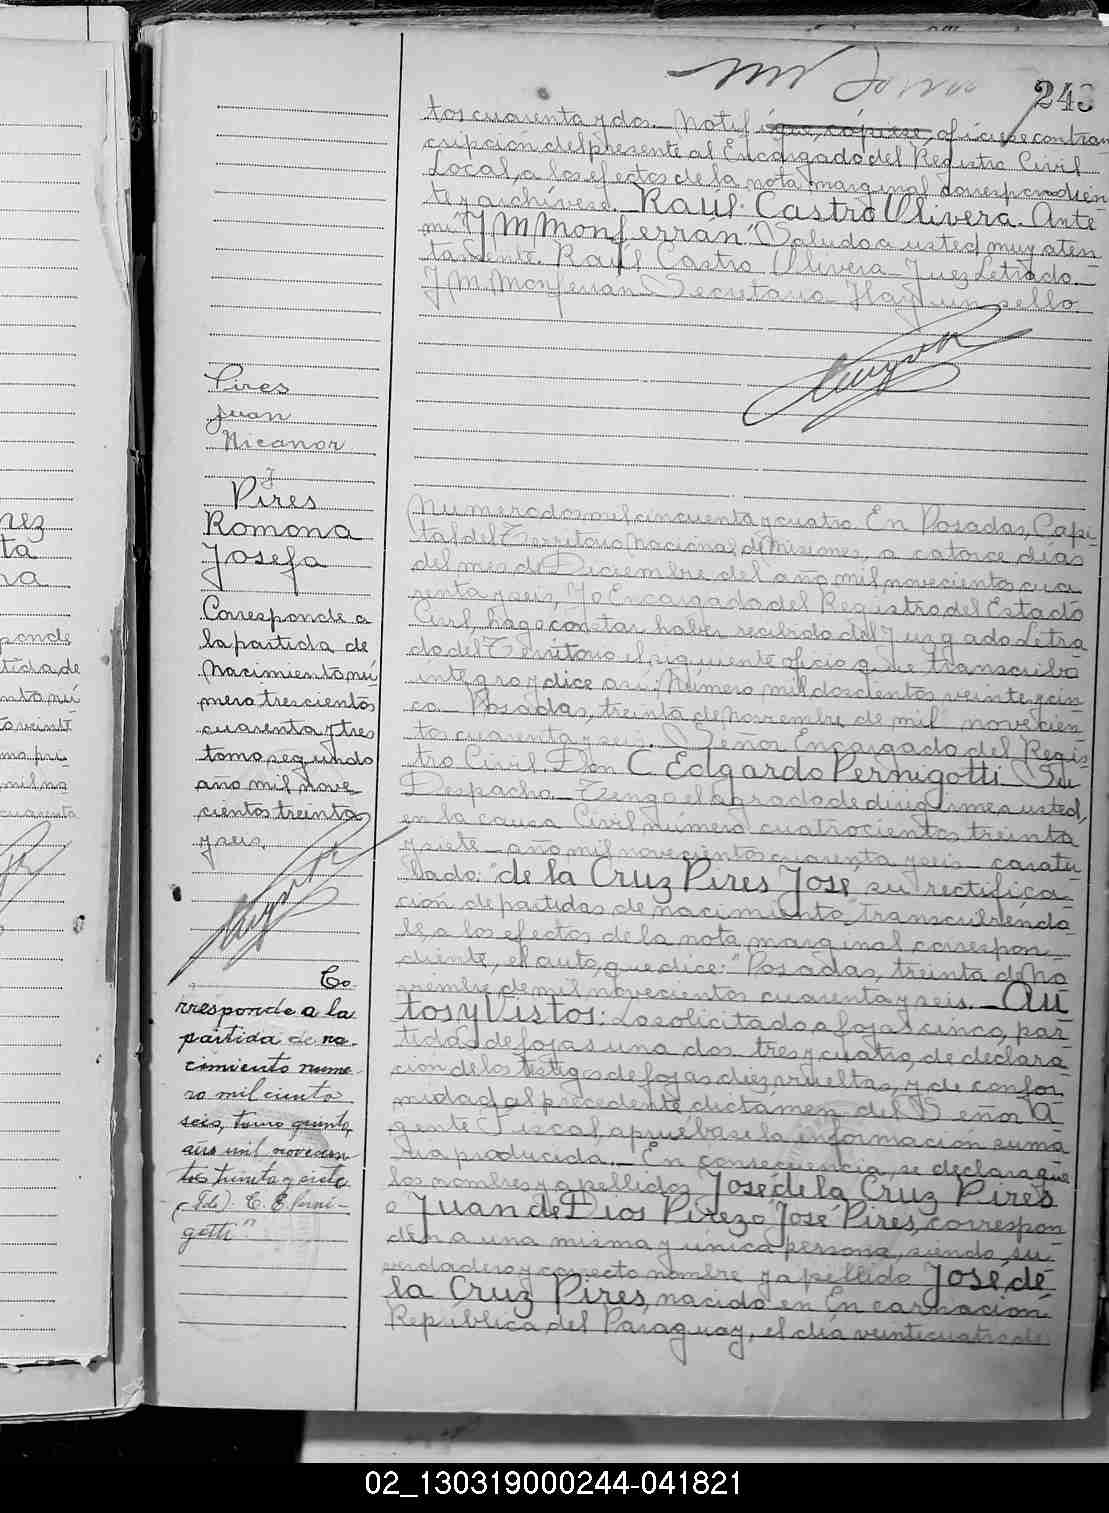 243
tos cuarenta y dos. Notifíque, cópiese, ofíciese con tran
cripción del presente al Encargado del Registro Civil
Local, a los efectos de la nota marginal correspondien
te y archívese. Raul Castro Olivera. Ante
mí: "J M Monferran". Saludo a usted muy aten
tamente. Raúl Castro Olivera Juez Letrado.
J. M. Monferran Secretario Hay un sello.
Pires
Juan
Nicanor
y
Pires
Romona
Josefa
Corresponde a
la partida de
Nacimiento nú
mero trescientos
cuarenta y tres
tomo segundo
año mil nove
cientos treinta
y seis.
Co
rresponde a la
partida de na-
cimiento nume-
ro mil ciento
seis, tomo quinto,
año mil novecien
tos treinta y siete
(Fdo). C. E. Perni-
gotti"
Numero dos mil cincuenta y cuatro. En Posadas, Capi-
tal del Territorio Nacional de Misiones, a catorce días
del mes de Diciembre del año mil novecientos cua
renta y seis, Yo Encargado del Registro del Estado
Civil, hago constar haber recibido del Juzgado Letra
do del Territorio el siguiente oficio que transcribo
íntegro y dice así: Número mil doscientos veinte y cin
co. Posadas, treinta de Noviembre de mil novecien
tos cuarenta y seis. Señor Encargado del Regis-
tro Civil. Don C. Edgardo Pernigotti. Su
Despacho. Tengo el agrado de dirigirme a usted,
en la causa Civil número cuatrocientos treinta
y siete año mil novecientos cuarenta y seis caratu
lado: "de la Cruz Pires José, su rectifica-
ción de partidas de nacimiento, transcribiendo
le, a los efectos de la nota marginal correspon-
diente, el auto, que dice: "Posadas, treinta de No
viembre de mil novecientos cuarenta y seis. Au
tos y Vistos: Lo solicitado a fojas cinco, par-
tidas de fojas una dos tres y cuatro, de declara-
ción de los testigos de fojas diez vueltas, y de confor
midad al precedente dictámen del Señor A
gente Fiscal, apruébase la información suma
ria producida. En consecuencia, se declara que
los nombres y apellidos José de la Cruz Pires
o Juan de Dios Pirez o "José" Pires, correspon
den a una misma y única persona, siendo su
verdadero y correcto nombre y apellido José de
la Cruz Pires, nacido en Encarnación
República del Paraguay, el día veinticuatro de
nez
ta
na
ponde
tida de
nto nú
02_130319000244-041821